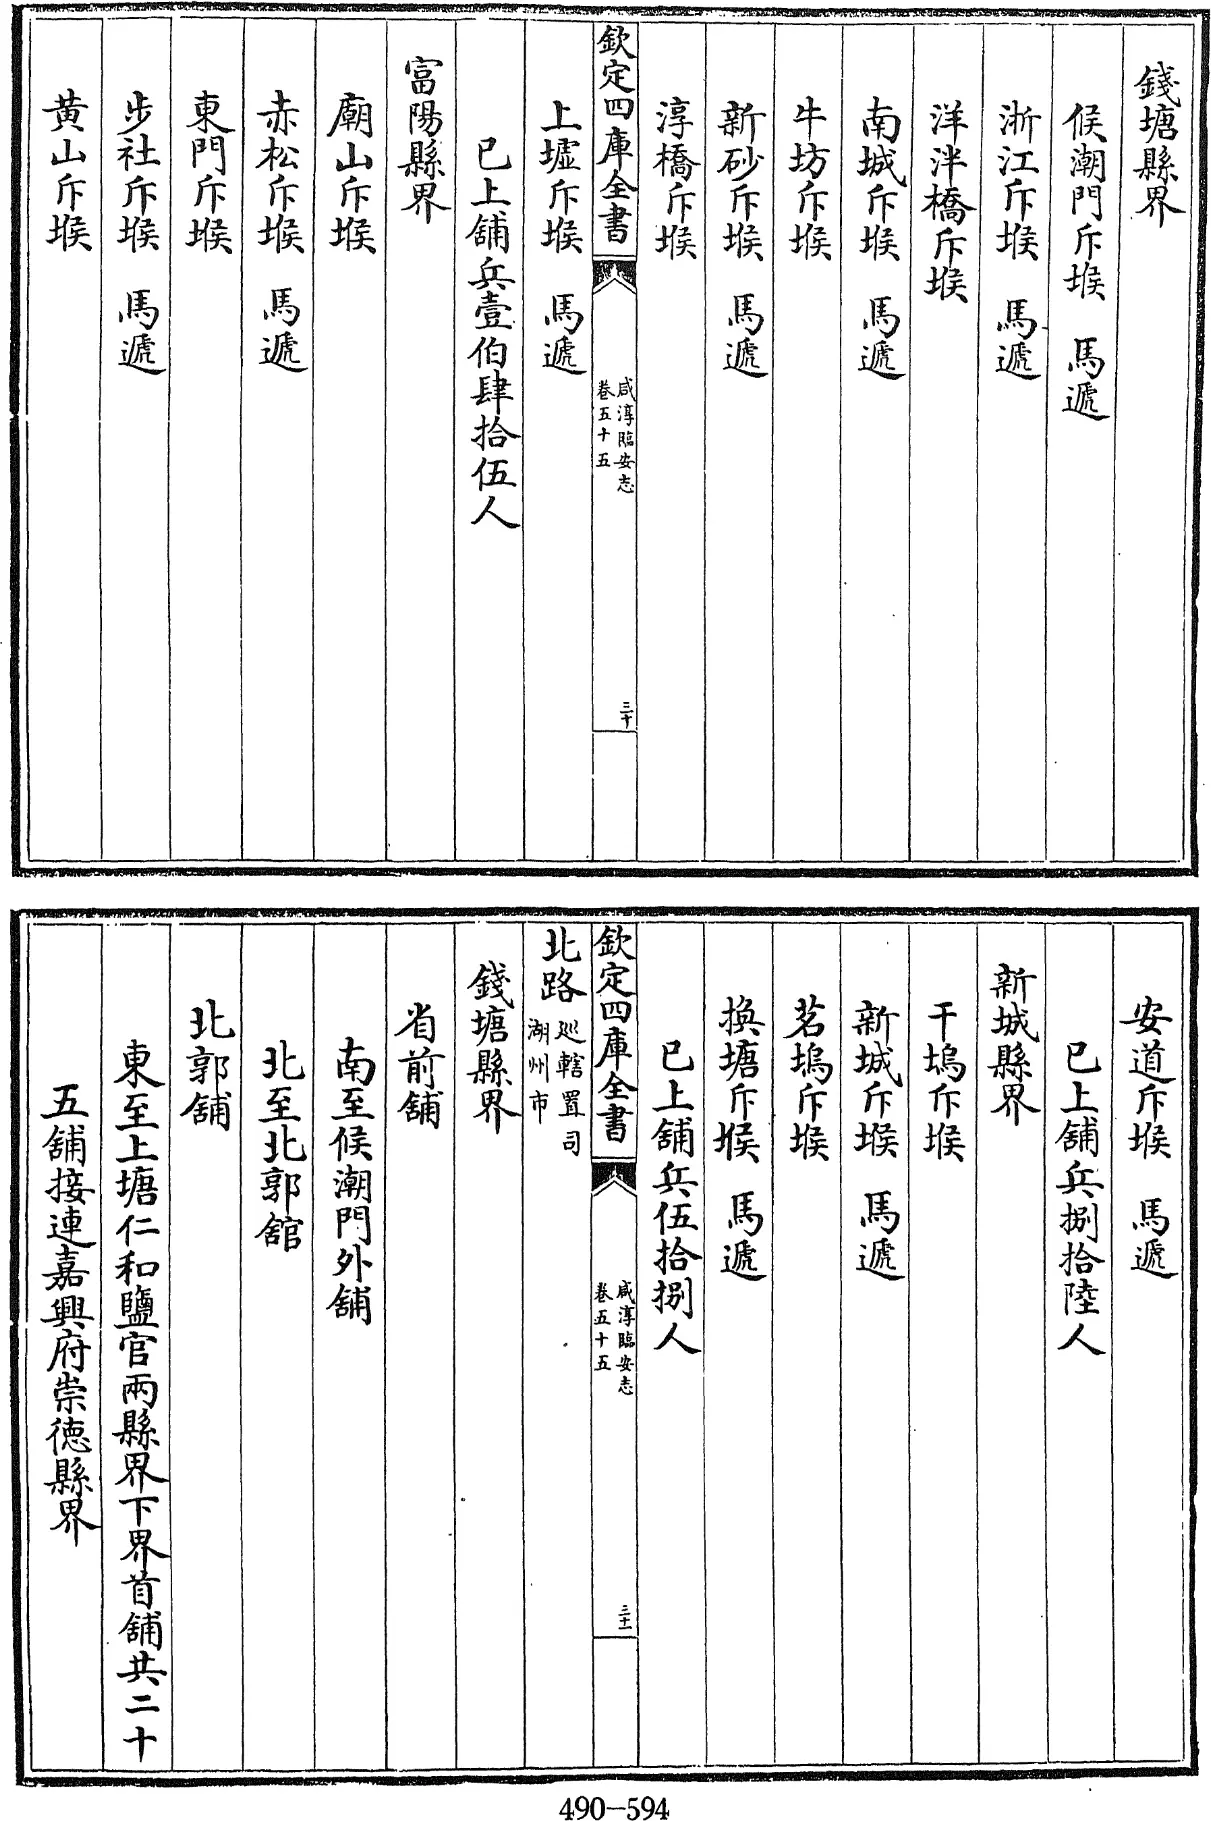 錢塘縣界
候潮門斥堠 馬遞
浙江斥堠 馬遞
洋泮橋斥堠
南城斥堠 馬遞
牛坊斥堠
新砂斥堠 馬遞
淳橋斥堠
欽定四庫全書 咸淳臨安志 卷五十五 三十
上墟斥堠 馬遞
已上舖兵壹伯肆拾伍人
富陽縣界
廟山斥堠
赤松斥堠 馬遞
東門斥堠
步社斥堠 馬遞
黄山斥堠
安道斥堠 馬遞
已上舖兵捌拾陸人
新城縣界
干塢斥堠
新城斥堠 馬遞
茗塢斥堠
換塘斥堠 馬遞
已上舖兵伍拾捌人
欽定四庫全書 咸淳臨安志 卷五十五 三十一
北路 巡轄置司湖州市
錢塘縣界
省前舖
南至候潮門外舖
北至北郭舘
北郭舖
東至上塘仁和鹽官兩縣界下界首舖共二十
五舖接連嘉興府崇德縣界
490-594